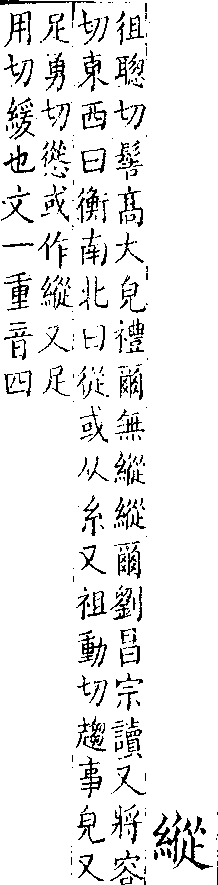 縱
徂聰切髻高大皃禮爾無縱縱爾劉昌宗讀又將容
切東西曰衡南北曰從或从糸又祖動切趨事皃又
足勇切慫或作縱又足
用切緩也文一重音四